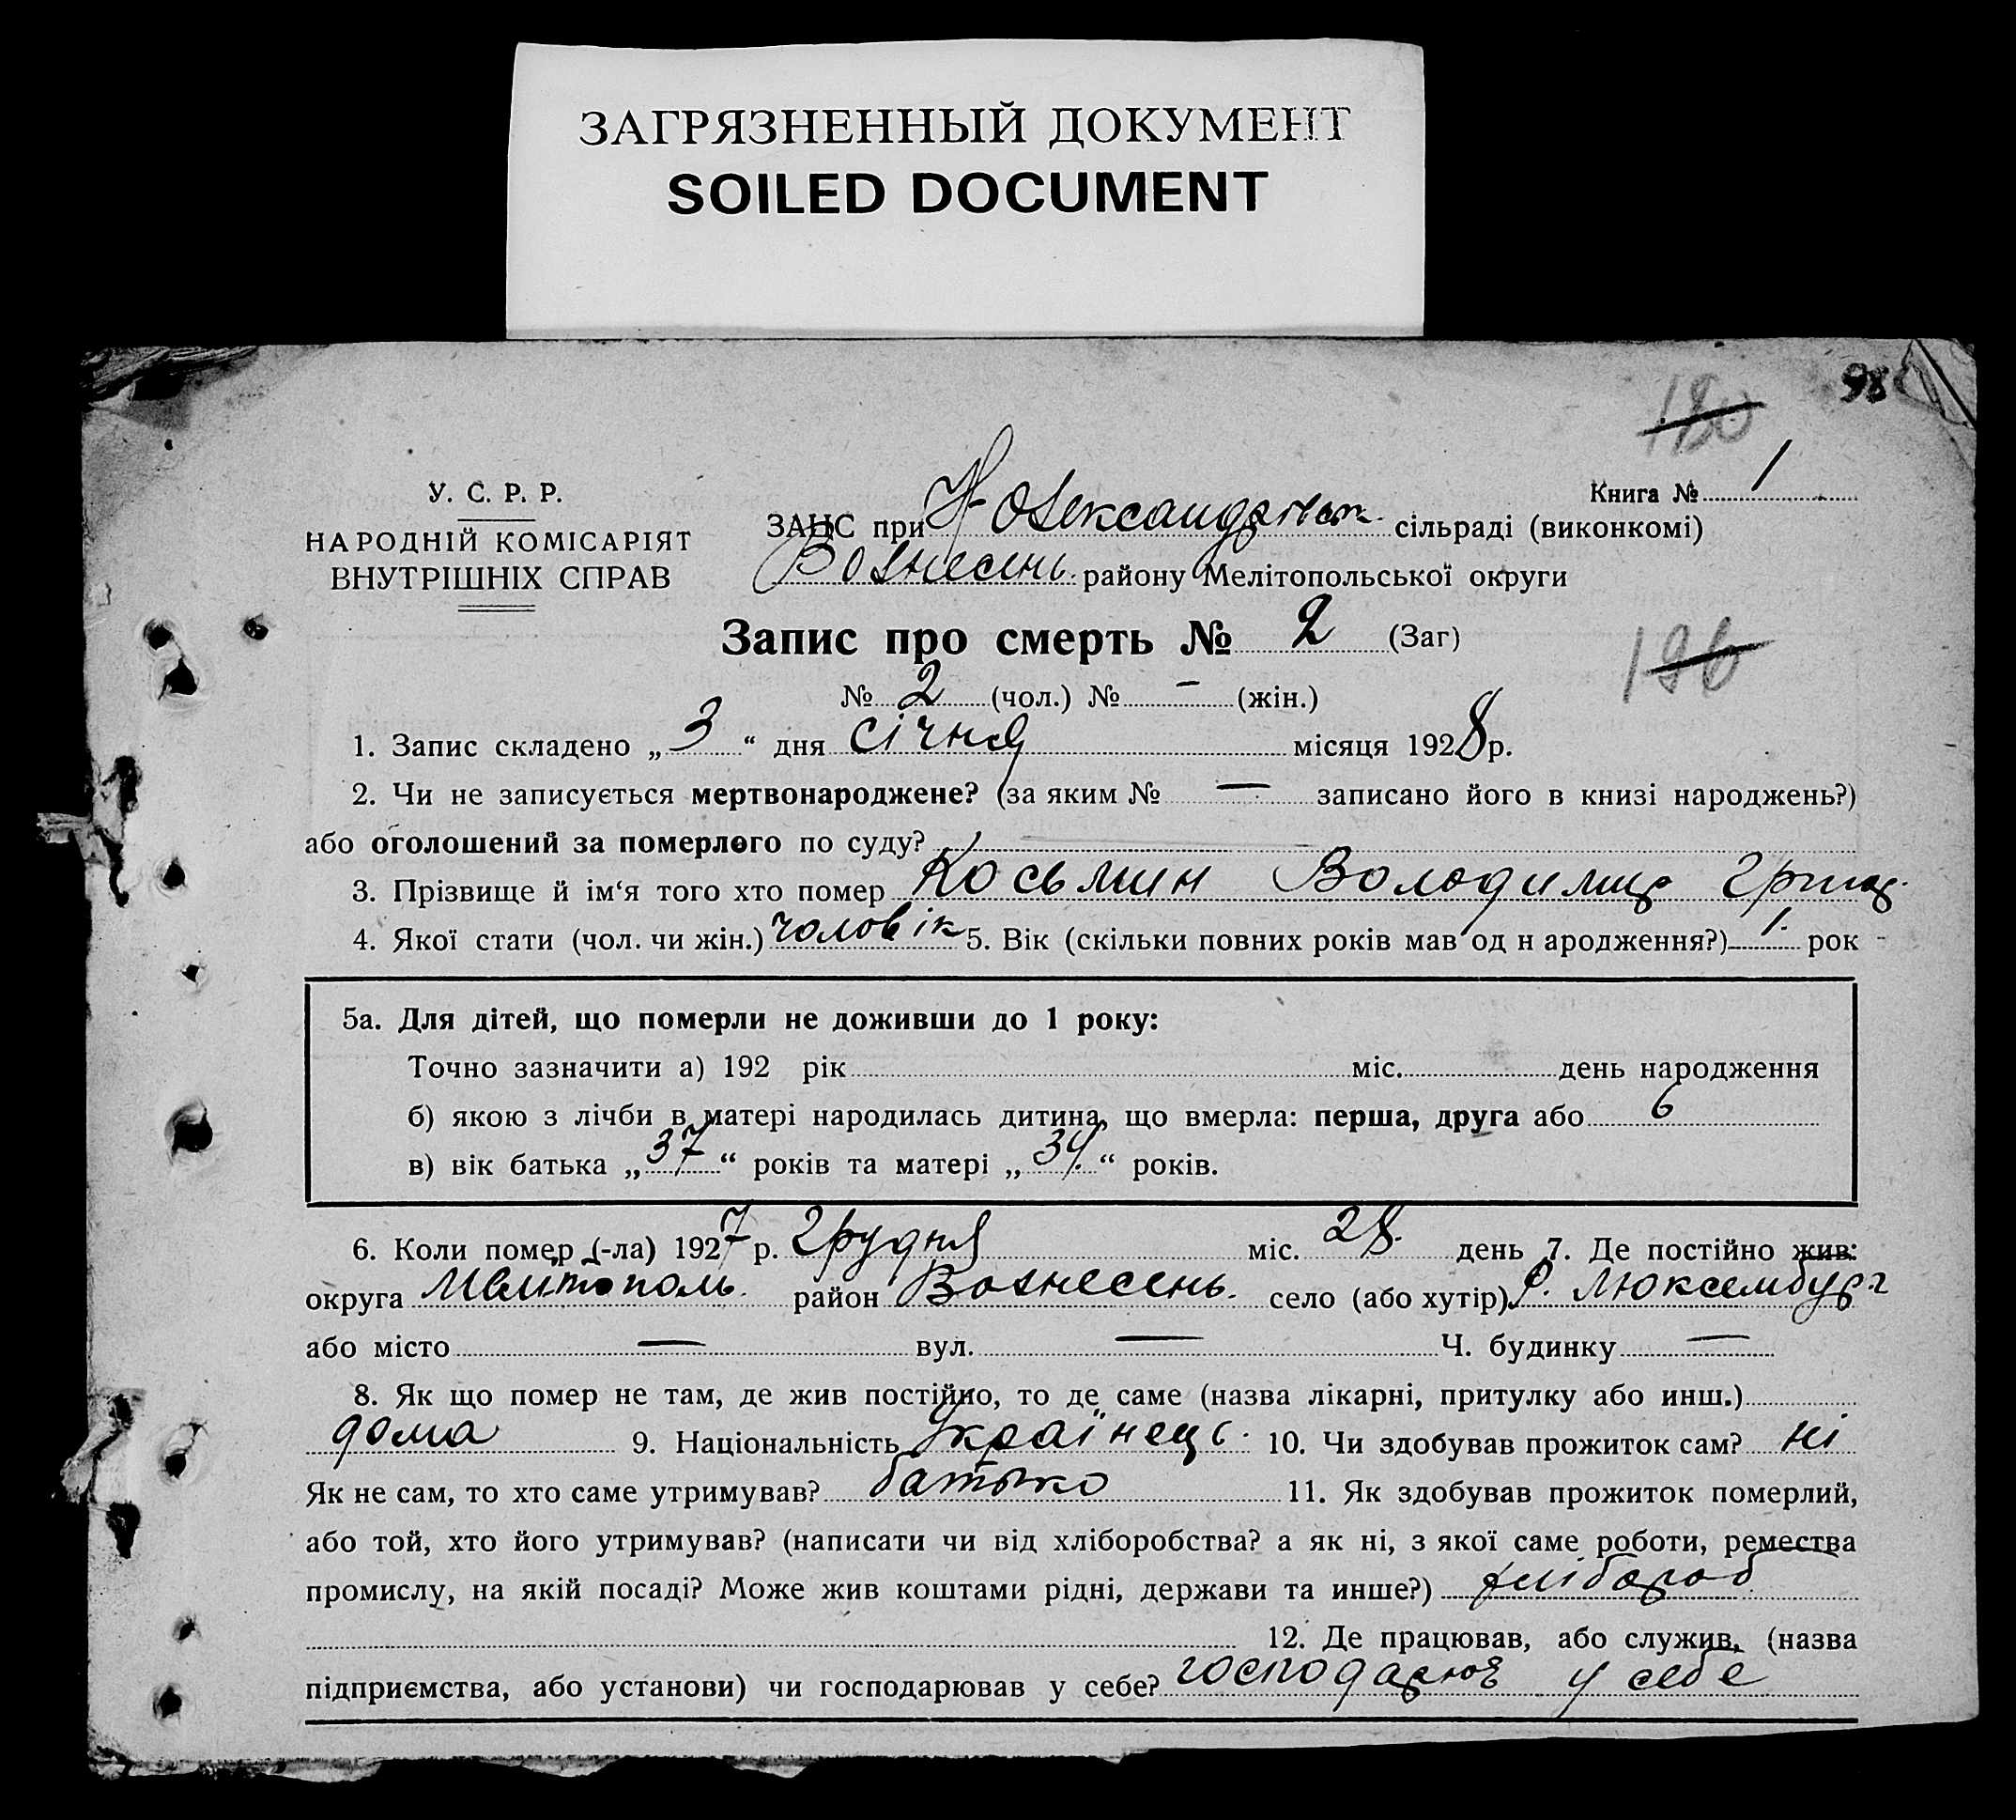 ЗАГРЯЗНЕННЫЙ ДОКУМЕНТ
SOILED DOCUMENT
98
180
У. С. Р. Р.
НАРОДНІЙ КОМІСАРІЯТ
ВНУТРІШНІХ СПРАВ
Книга № 1
ЗАНС при Н-Олександрівск. сільраді (виконкомі)
Вознесень. району Мелітопольської округи
Запис про смерть № 2 (Заг)
196
№ 2 (чол.) № — (жін.)
1. Запис складено „ 3 “ дня січня місяця 1928 р.
2. Чи не записується мертвонароджене? (за яким № — записано його в книзі народжень?)
або оголошений за померлого по суду? —
3. Прізвище й ім‘я того хто помер Косьмин Володимир Григ.
4. Якої стати (чол. чи жін.) чоловік 5. Вік (скільки повних років мав од н ародження?) 1. рок -
5а. Для дітей, що померли не доживши до 1 року:
Точно зазначити а) 192 рік міс. день народження
б) якою з лічби в матері народилась дитина, що вмерла: перша, друга або 6
в) вік батька „ 37 “ років та матері „ 34. “ років.
6. Коли помер (-ла) 1927 р. Грудня міс. 28. день 7. Де постійно жив:
округа Мелітополь. район Вознесень. село (або хутір) Р. Люксембург
або місто — вул. — Ч. будинку —
8. Як що помер не там, де жив постійно, то де саме (назва лікарні, притулку або инш.)
дома 9. Національність Українець. 10. Чи здобував прожиток сам? ні
Як не сам, то хто саме утримував? батько 11. Як здобував прожиток померлий,
або той, хто його утримував? (написати чи від хліборобства? а як ні, з якої саме роботи, ремества
промислу, на якій посаді? Може жив коштами рідні, держави та инше?) хлібороб
12. Де працював, або служив, (назва
підприємства, або установи) чи господарював у себе? господарює у себе